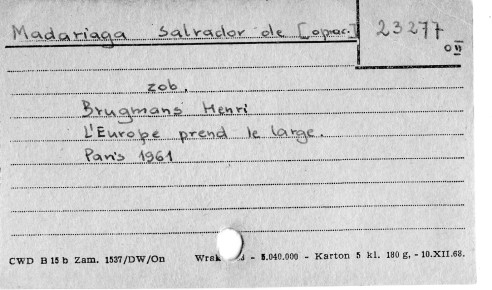 Madariaga Salvador de [oprac.] 23277
O II
zob.
Brugmans Henri
L'Europe prend le large.
Paris 1961
CWD B 15 b Zam. 1537/DW/On - 5.040.000 - Karton 5 kl. 180 g, - 10.XII.68.